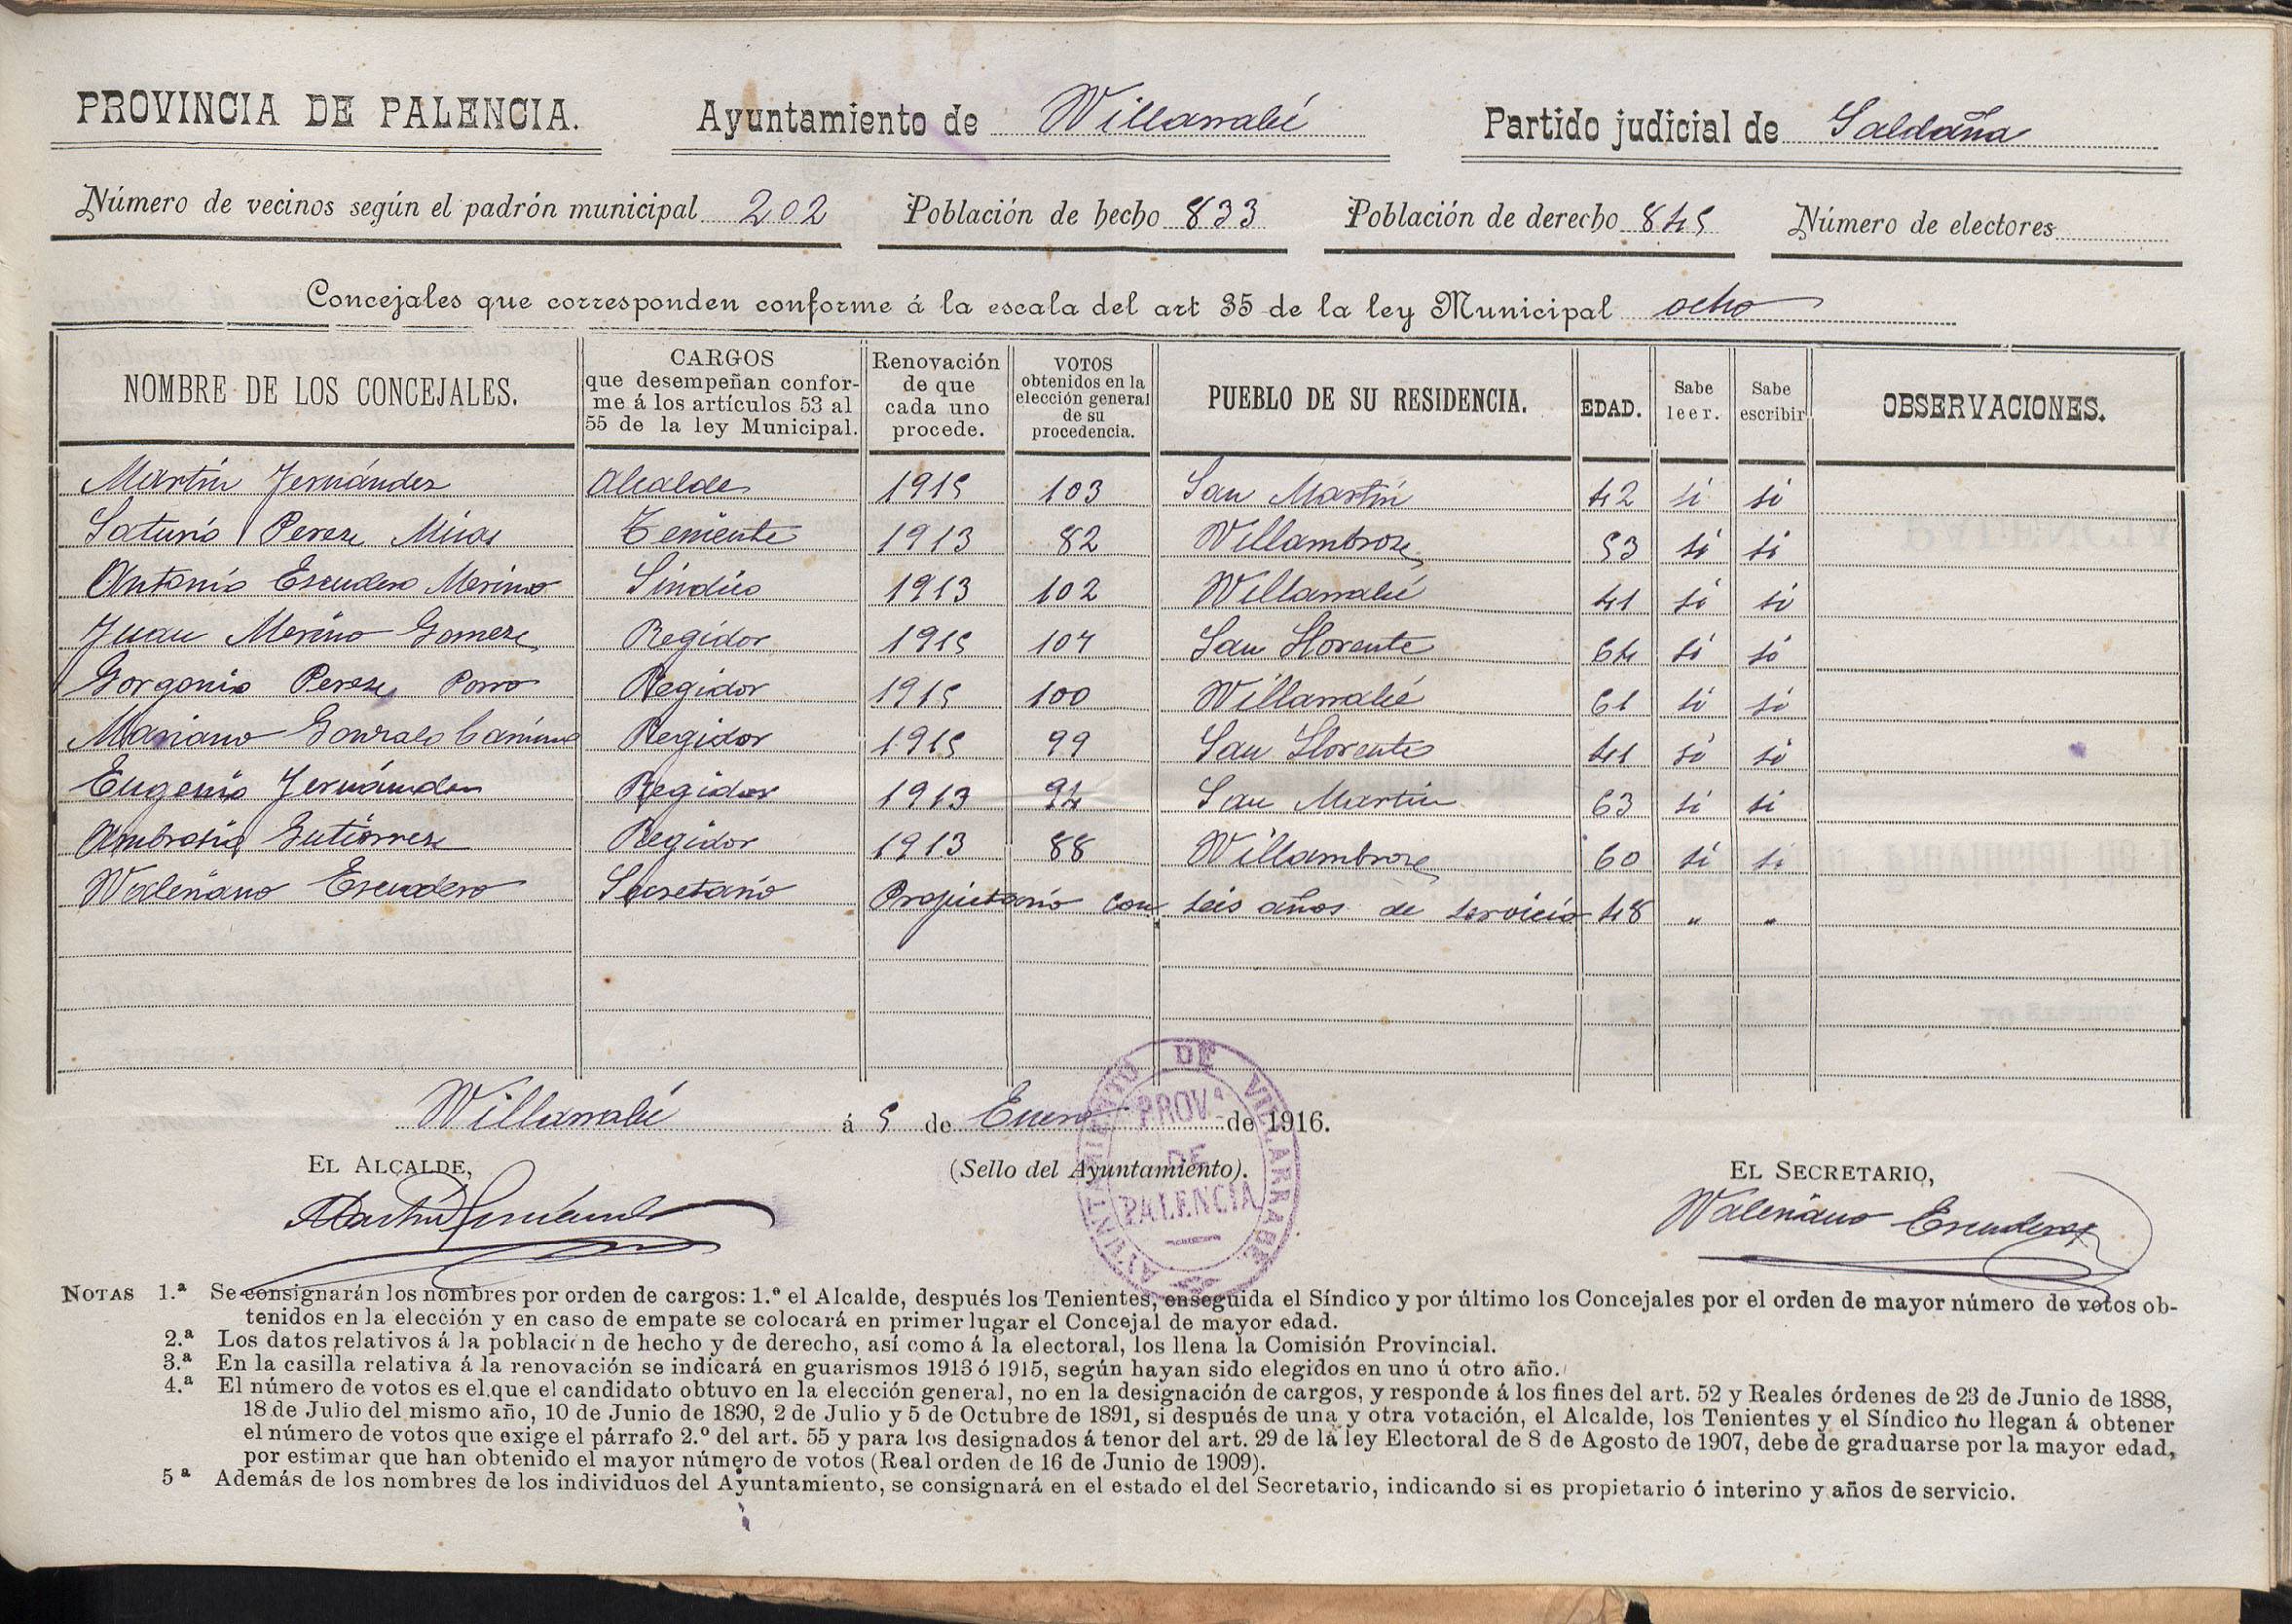 PROVINCIA DE PALENCIA. Ayuntamiento de Villarrabé Partido judicial de Saldaña
Número de vecinos según el padrón municipal 202 Población de hecho 833 Población de derecho 845 Número de electores
Concejales que corresponden conforme á la escala del art 35 de la ley Municipal ocho
NOMBRE DE LOS CONCEJALES. CARGOS que desempeñan confor- me á los artículos 53 al 55 de la ley Municipal. Renovación de que cada uno procede. VOTOS obtenidos en la elección general de su procedencia. PUEBLO DE SU RESIDENCIA. EDAD. Sabe leer. Sabe escribir OBSERVACIONES.
Martín Fernández Alcalde 1915 103 San Martín 42 si si
Saturio Perez Teniente 1913 82 Villambroz 53 si si
Antonio Escudero Merino Sindico 1913 102 Villarrabé 41 si si
Juan Merino Gomez Regidor 1915 107 San Llorente 64 si si
Gorgonio Perez Porro Regidor 1915 100 Villarrabé 61 si si
Mariano Gonzalo Regidor 1915 99 San Llorente 41 si si
Eugenio Fernández Regidor 1913 94 San Martin 63 si si
Ambrosio Gutiérrez Regidor 1913 88 Villambroz 60 si si
Valeriano Escudero Secretario Propietario con seis años de servicio 48 " "
Villarrabé á 5 de Enero de 1916.
EL ALCALDE, (Sello del Ayuntamiento). EL SECRETARIO,
Martín Fernández Valeriano Escudero
AYUNTAMIENTO DE VILLARRABÉ
PROVª
DE
PALENCIA
NOTAS 1.ª Se consignarán los nombres por orden de cargos: 1.º el Alcalde, después los Tenientes, enseguida el Síndico y por último los Concejales por el orden de mayor número de votos ob-
tenidos en la elección y en caso de empate se colocará en primer lugar el Concejal de mayor edad.
2.ª Los datos relativos á la población de hecho y de derecho, así como á la electoral, los llena la Comisión Provincial.
3.ª En la casilla relativa á la renovación se indicará en guarismos 1913 ó 1915, según hayan sido elegidos en uno ú otro año.
4.ª El número de votos es el que el candidato obtuvo en la elección general, no en la designación de cargos, y responde á los fines del art. 52 y Reales órdenes de 23 de Junio de 1888,
18 de Julio del mismo año, 10 de Junio de 1890, 2 de Julio y 5 de Octubre de 1891, si después de una y otra votación, el Alcalde, los Tenientes y el Síndico no llegan á obtener
el número de votos que exige el párrafo 2.º del art. 55 y para los designados á tenor del art. 29 de la ley Electoral de 8 de Agosto de 1907, debe de graduarse por la mayor edad,
por estimar que han obtenido el mayor número de votos (Real orden de 16 de Junio de 1909).
5ª Además de los nombres de los individuos del Ayuntamiento, se consignará en el estado el del Secretario, indicando si es propietario ó interino y años de servicio.